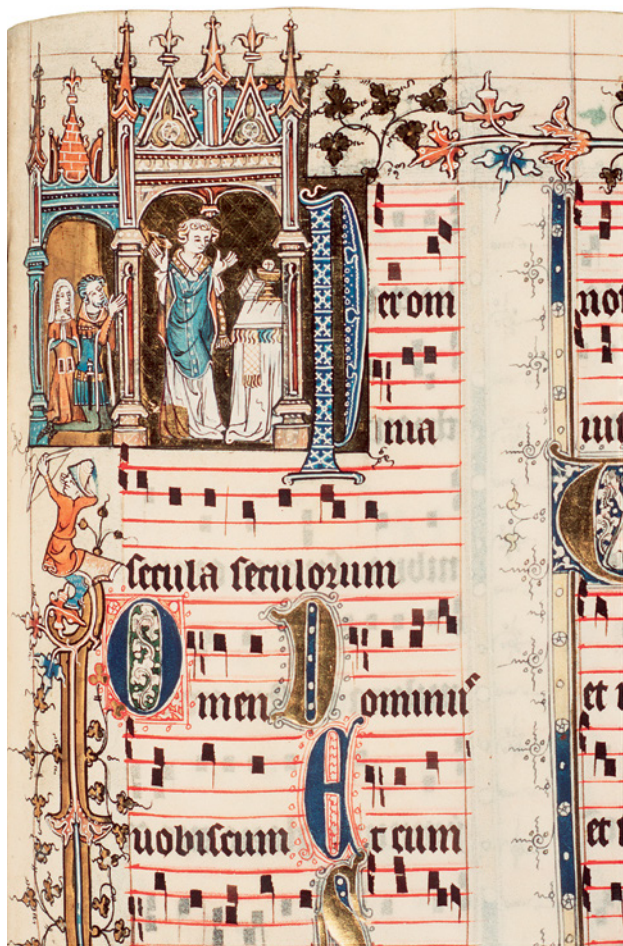 Perom
nia
secula seculorum
Omen Dominus
uobiscum Et cum
et
et